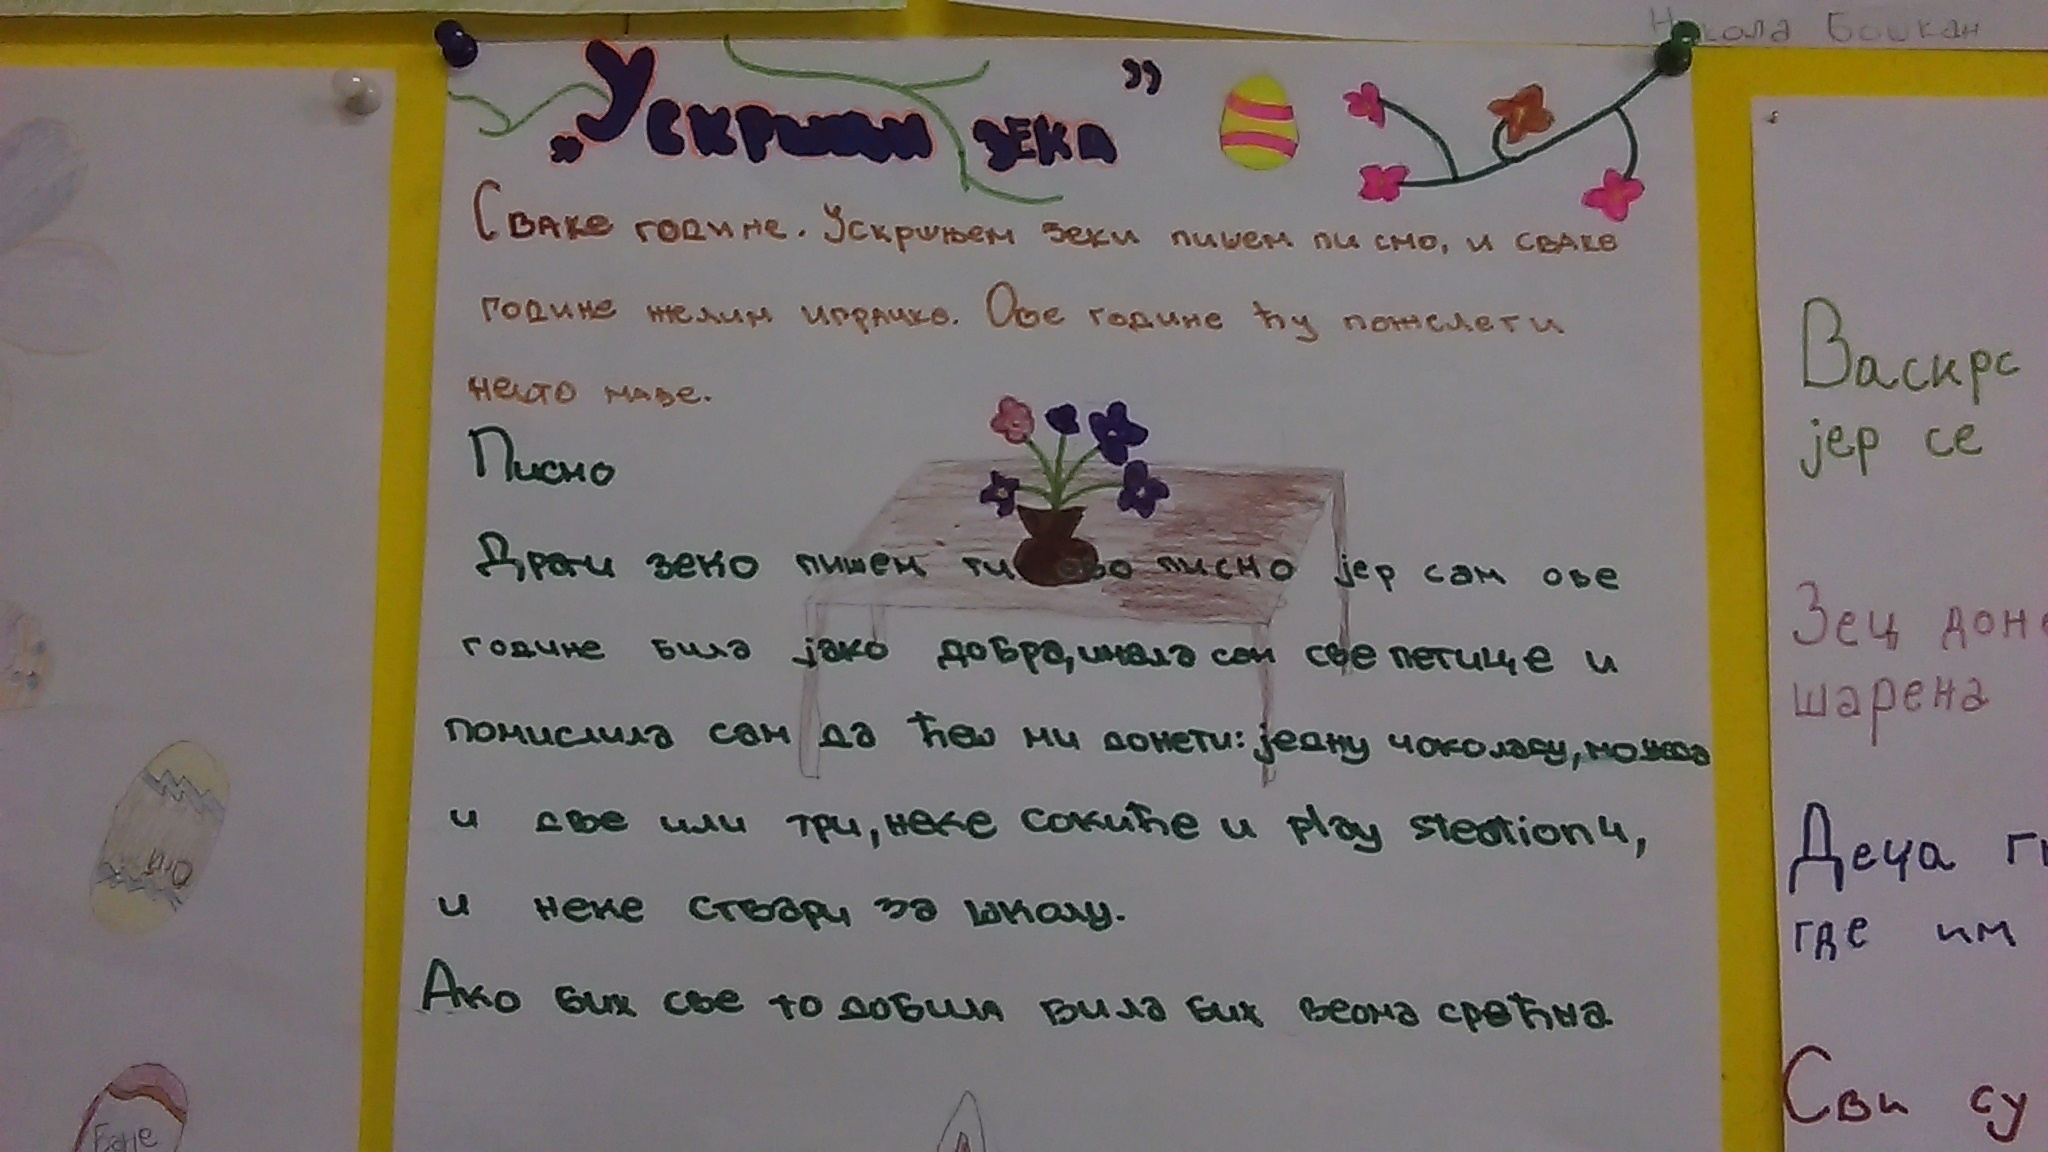 Никола Бошкан
„Ускршњи зека”
Сваке године. Ускршњем зеки пишем писмо, и сваке
године желим играчке. Ове године ћу пожелети
нешто мање.
Писмо
Драги зеко пишем ти ово писмо јер сам ове
године била јако добра, имала сам све петице и
помислила сам да ћеш ми донети: једну чоколаду, можда
и две или три, неке сокиће и play steation 4,
и неке ствари за школу.
Ако бих све то добила била бих веома срећна
Васкрс
јер се
Зец доне
шарена
Деца
где им
Сви су
Бане